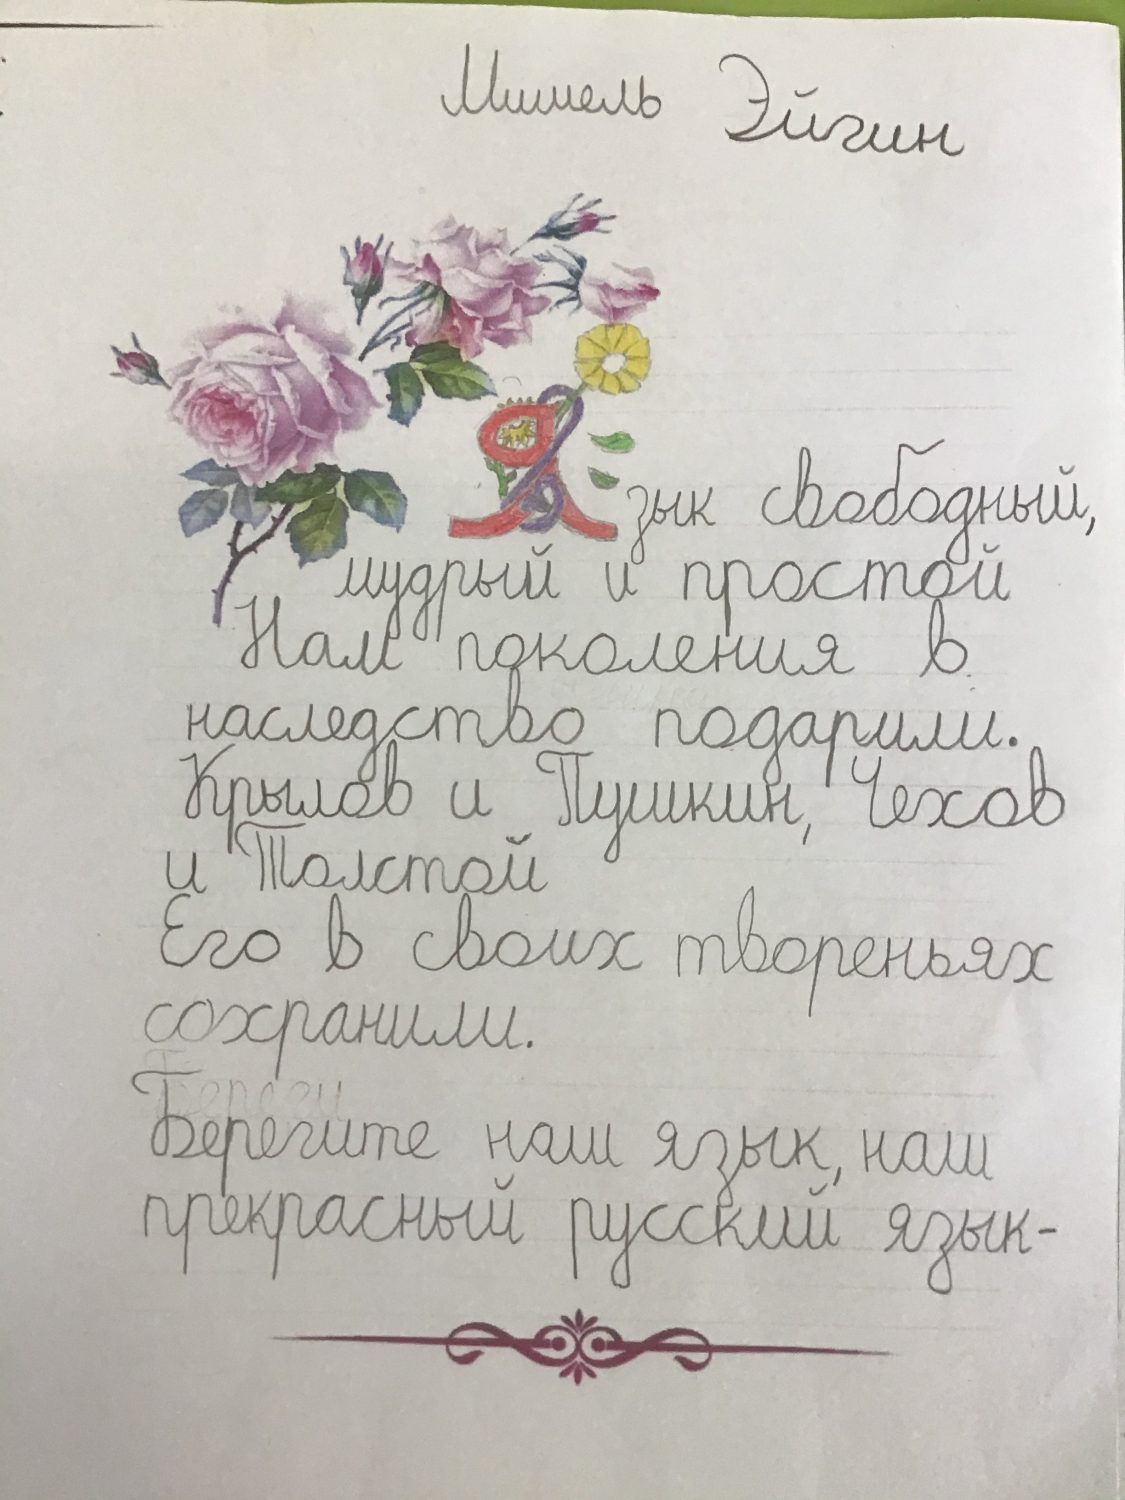 Мишель Эйгин
Язык свободный,
мудрый и простой
Нам поколения в
наследство подарили.
Крылов и Пушкин, Чехов
и Толстой
Его в своих твореньях
сохранили.
Береги
Берегите наш язык, наш
прекрасный русский язык-